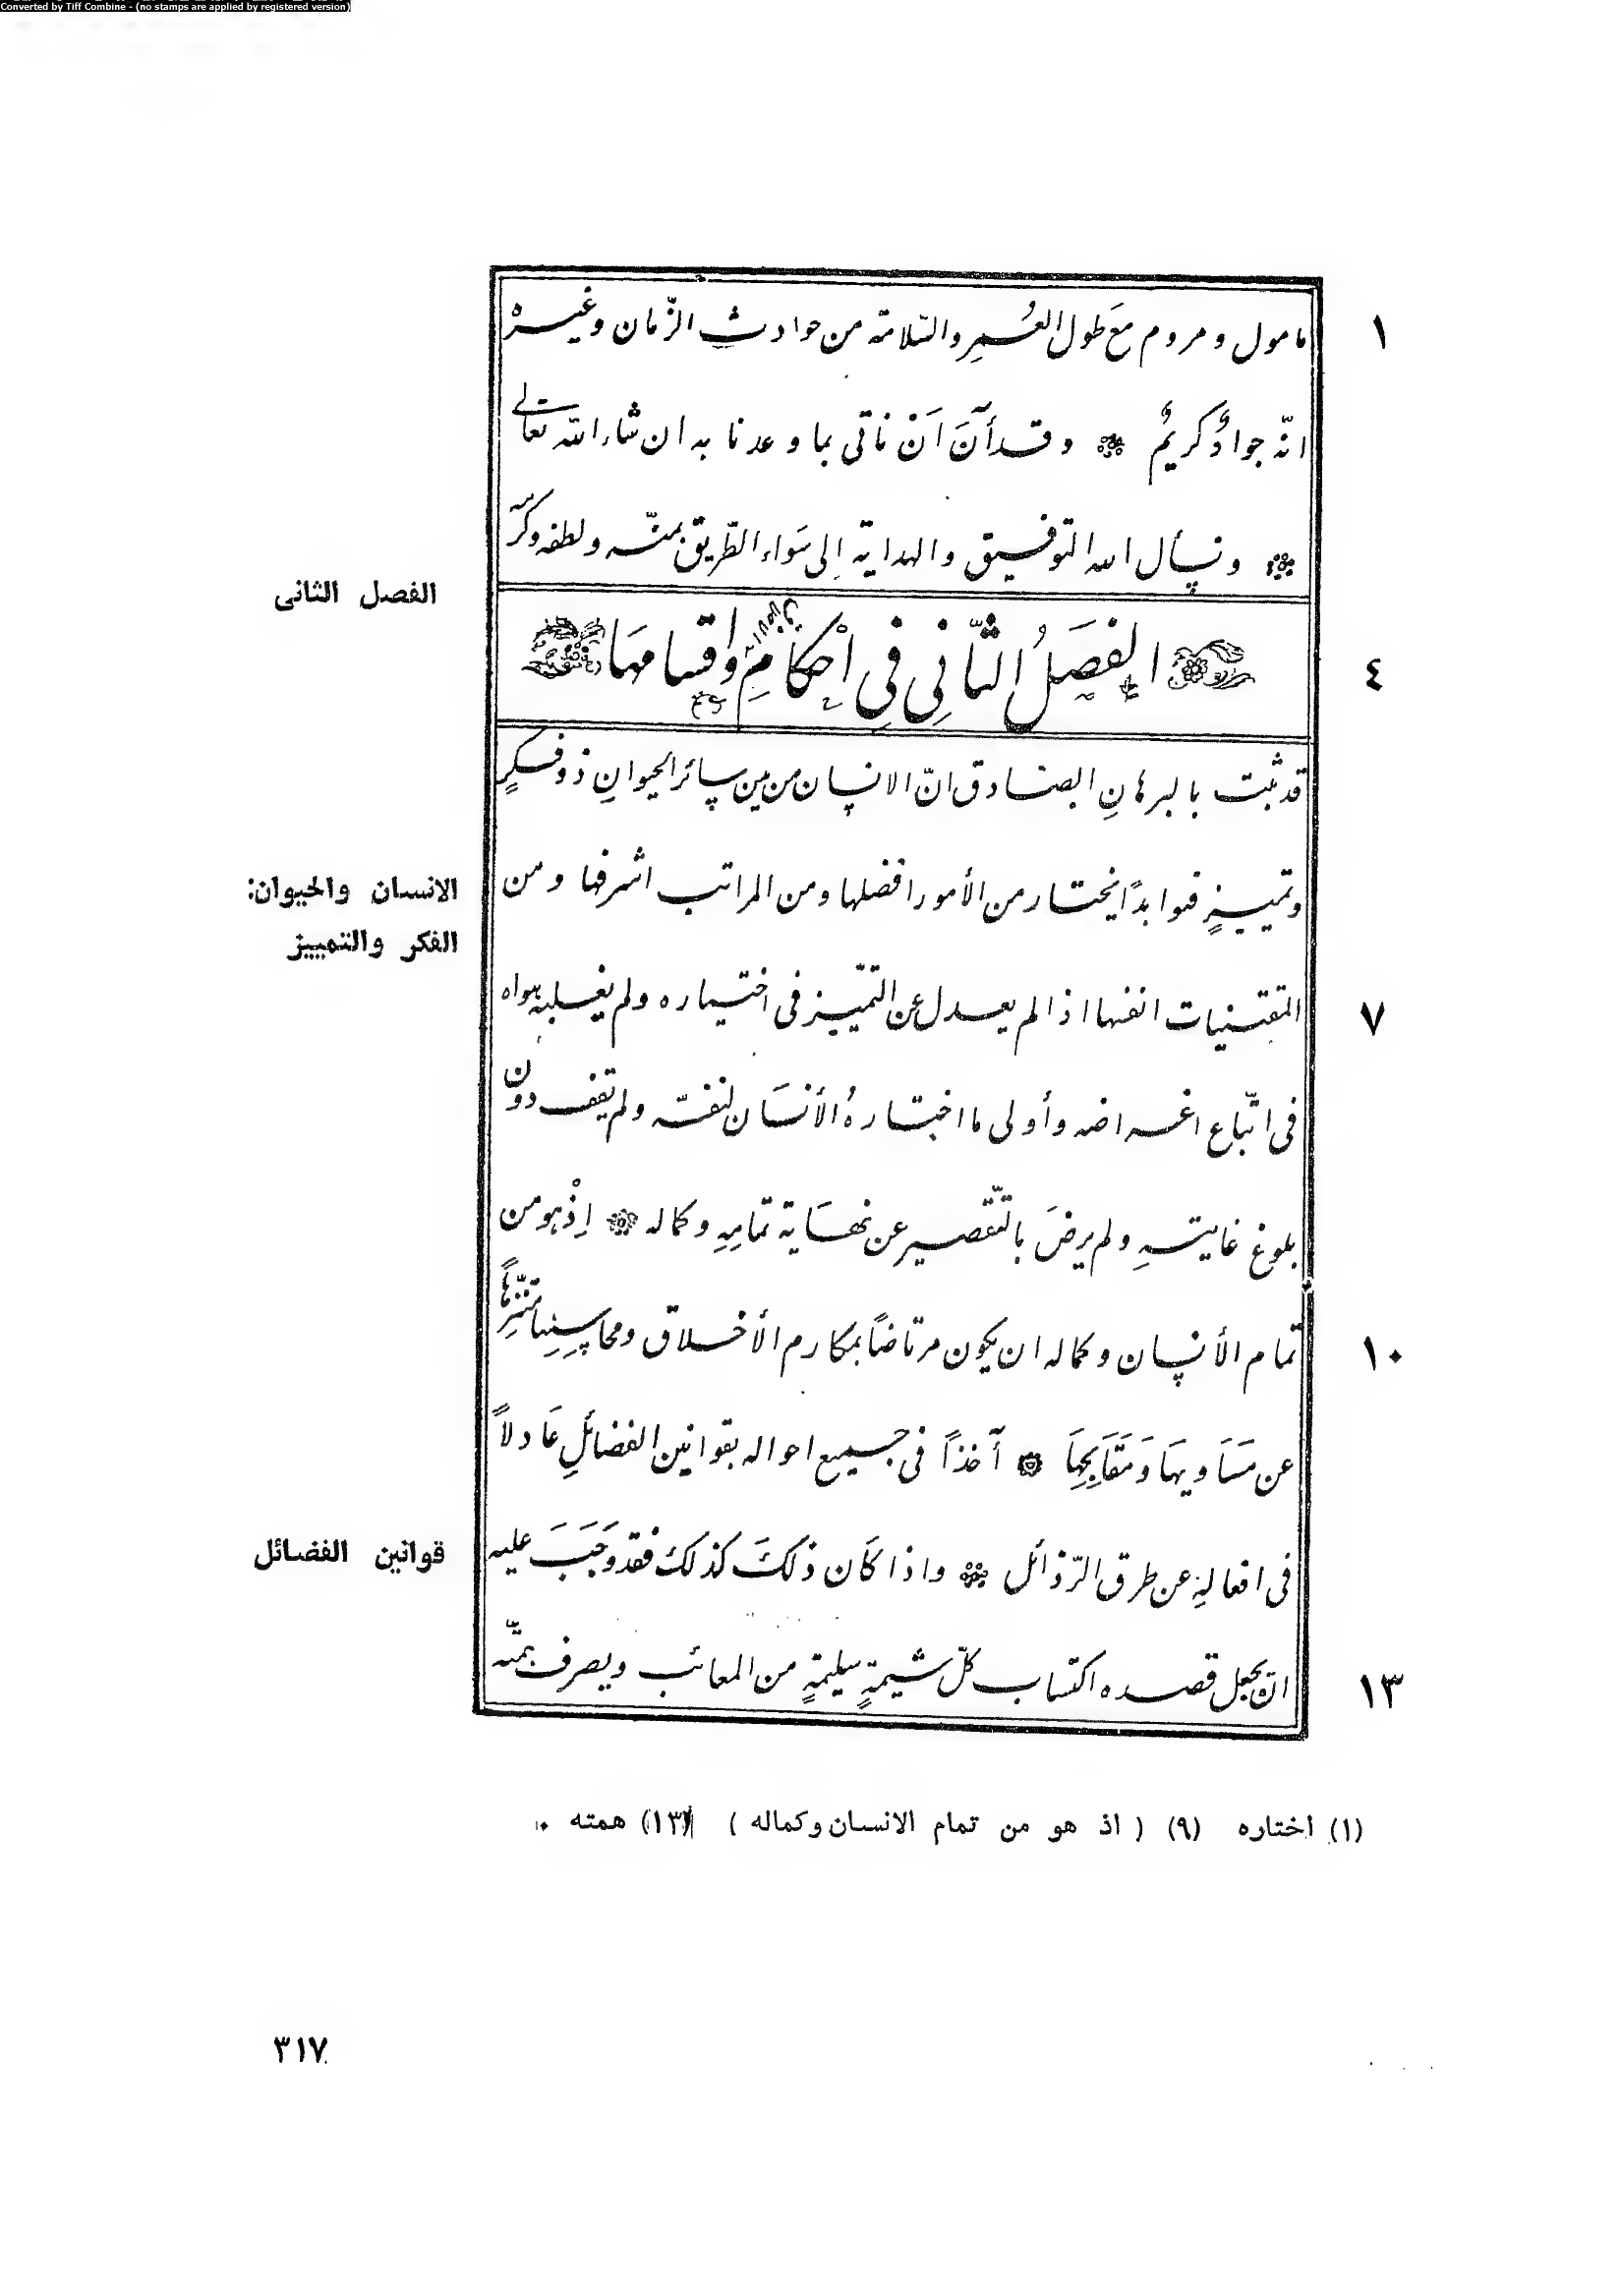 Converted by Tiff Combine - (no stamps are applied by registered version)
مامول ومروم مَع طول العُمرِ والسّلامة من حوادث الزّمان وغيره
١
انّه جوادٌ كريمٌ وقد أٓنَ اَنْ ناتى بما وعدنا به ان شاء الله تعالى
ونسأل الله التوفيق والهداية إلى سَواء الطّريق بمنّه ولطفه وكرمه
الفصل الثانى
الفصَلُ الثّانِي فِي احْكامِ واقسامهَا
٤
قد ثبت بالبرهانِ الصادق انّ الانسان من بين سائر الحيوانِ ذو فكرٍ
وتمييزٍ فهو ابدًا يختار من الأمور افضلها ومن المراتب اشرفها ومن
الانسان والحيوان:
الفكر والتمييز
المقتنيات انفسها اذا لم يعدل عن التّمييز فى اختياره ولم يغلبه هواه
٧
فى اتّباع اغراضه وأولى ما اختارهُ الأنسَان لنفسه ولم يقف دون
بلوغ غايتهِ ولم يرضَ بالتّقصير عن نهَاية تمامِهِ وكماله اِذْ هو من
تمام الأنسان وكماله ان يكون مرتاضاً بمكارم الأخلاق ومحاسِنِها متنزّهاً
١٠
عن مَسَاويهَا وَمَقَابِحِهَا آخذاً فى جميع احواله بقوانين الفضائلِ عَادلاً
فى افعالهِ عن طرق الرّذائل واذا كَان ذلكَ كذلك فقد وَجَبَ عليه
قوانين الفضائل
ان يجعل قصده اكتساب كلّ شيمةٍ سليمةٍ من المعائب ويصرف همّته
١٣
(١) اختاره (٩) ( اذ هو من تمام الانسان وكماله ) (١٣) همته ٠
٣١٧